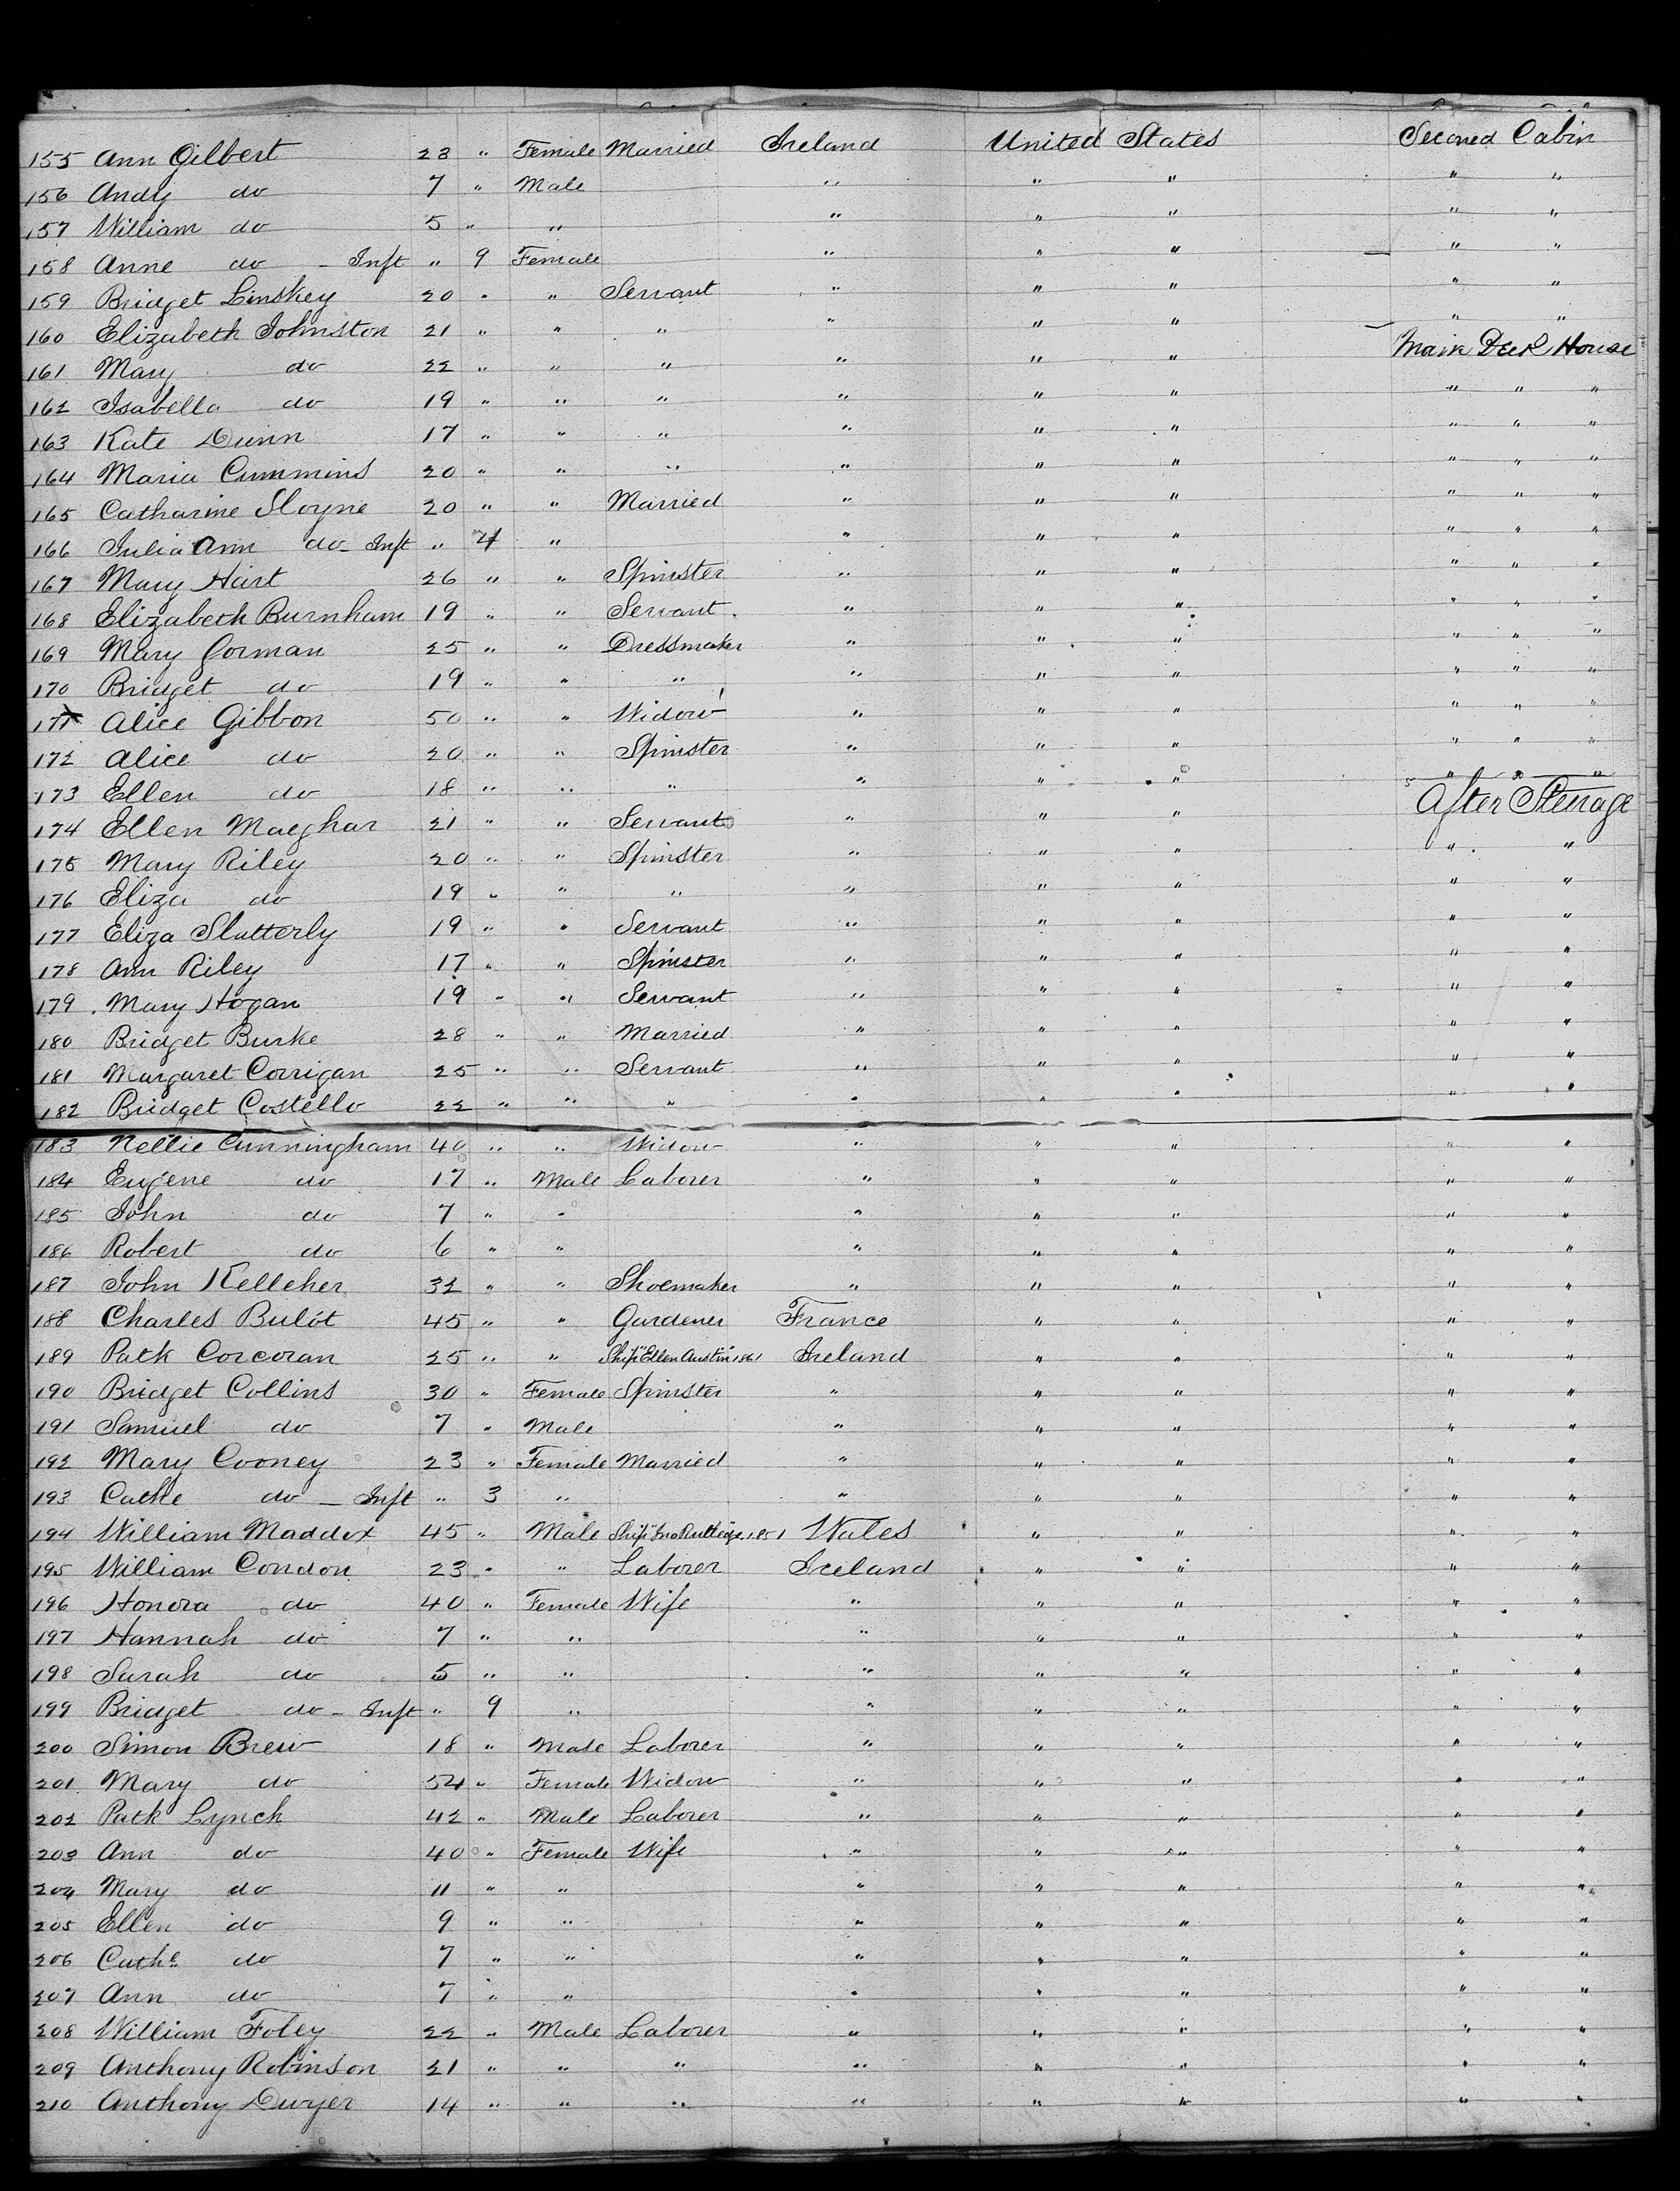 155 Ann Gilbert 28 " Female Married Ireland United States Second Cabin
156 Andy do 7 " Male " " " " "
157 William do 5 " " " " " " "
158 Anne do - Inft " 9 Female " " " " "
159 Bridget Linskey 20 " " Servant " " " " "
160 Elizabeth Johnston 21 " " " " " " " "
161 Mary do 22 " " " " " " Main Deck House
162 Isabella do 19 " " " " " " " " "
163 Kate Dunn 17 " " " " " " " " "
164 Maria Cummins 20 " " " " " " " " "
165 Catharine Sloyne 20 " " Married " " " " " "
166 Julia Ann do - Inft " 4 " " " " " " "
167 Mary Hart 26 " " Spinster " " " " " "
168 Elizabeth Burnham 19 " " Servant " " " " " "
169 Mary Gorman 25 " " Dressmaker " " " " " "
170 Bridget do 19 " " " " " " " " "
171 Alice Gibbon 50 " " Widow " " " " " "
172 Alice do 20 " " Spinster " " " " " "
173 Ellen do 18 " " " " " " " " "
174 Ellen Maeghar 21 " " Servant " " " After Steerage
175 Mary Riley 20 " " Spinster " " " " "
176 Eliza do 19 " " " " " " " "
177 Eliza Slatterly 19 " " Servant " " " " "
178 Ann Riley 17 " " Spinster " " " " "
179 Mary Hogan 19 " " Servant " " " " "
180 Bridget Burke 28 " " Married " " " " "
181 Margaret Corrigan 25 " " Servant " " " " "
182 Bridget Costello 22 " " " " " " " "
183 Nellie Cunningham 40 " " Widow " " " " "
184 Eugene do 17 " Male Laborer " " " " "
185 John do 7 " " " " " " "
186 Robert do 6 " " " " " " "
187 John Kelleher 32 " " Shoemaker " " " " "
188 Charles Bulót 45 " " Gardener France " " " "
189 Patk Corcoran 25 " " Ship "Ellen Austin" 1861 Ireland " " " "
190 Bridget Collins 30 " Female Spinster " " " " "
191 Samuel do 7 " Male " " " " "
192 Mary Cooney 23 " Female Married " " " " "
193 Cathe do - Inft " 3 " " " " " "
194 William Maddox 45 " Male Ship "Jno Rutledge" 1851 Wales " " " "
195 William Condon 23 " " Laborer Ireland " " " "
196 Honora do 40 " Female Wife " " " " "
197 Hannah do 7 " " " " " " "
198 Sarah do 5 " " " " " " "
199 Bridget do - Inft " 9 " " " " " "
200 Simon Brew 18 " Male Laborer " " " " "
201 Mary do 54 " Female Widow " " " " "
202 Patk Lynch 42 " Male Laborer " " " " "
203 Ann do 40 " Female Wife " " " " "
204 Mary do 11 " " " " " " "
205 Ellen do 9 " " " " " " "
206 Cathe do 7 " " " " " " "
207 Ann do 7 " " " " " " "
208 William Foley 22 " Male Laborer " " " " "
209 Anthony Robinson 21 " " " " " " " "
210 Anthony Dwyer 14 " " " " " " " "